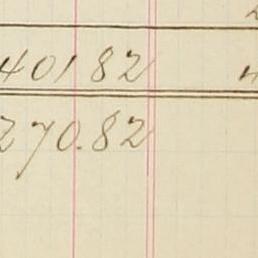 401 82
270.82